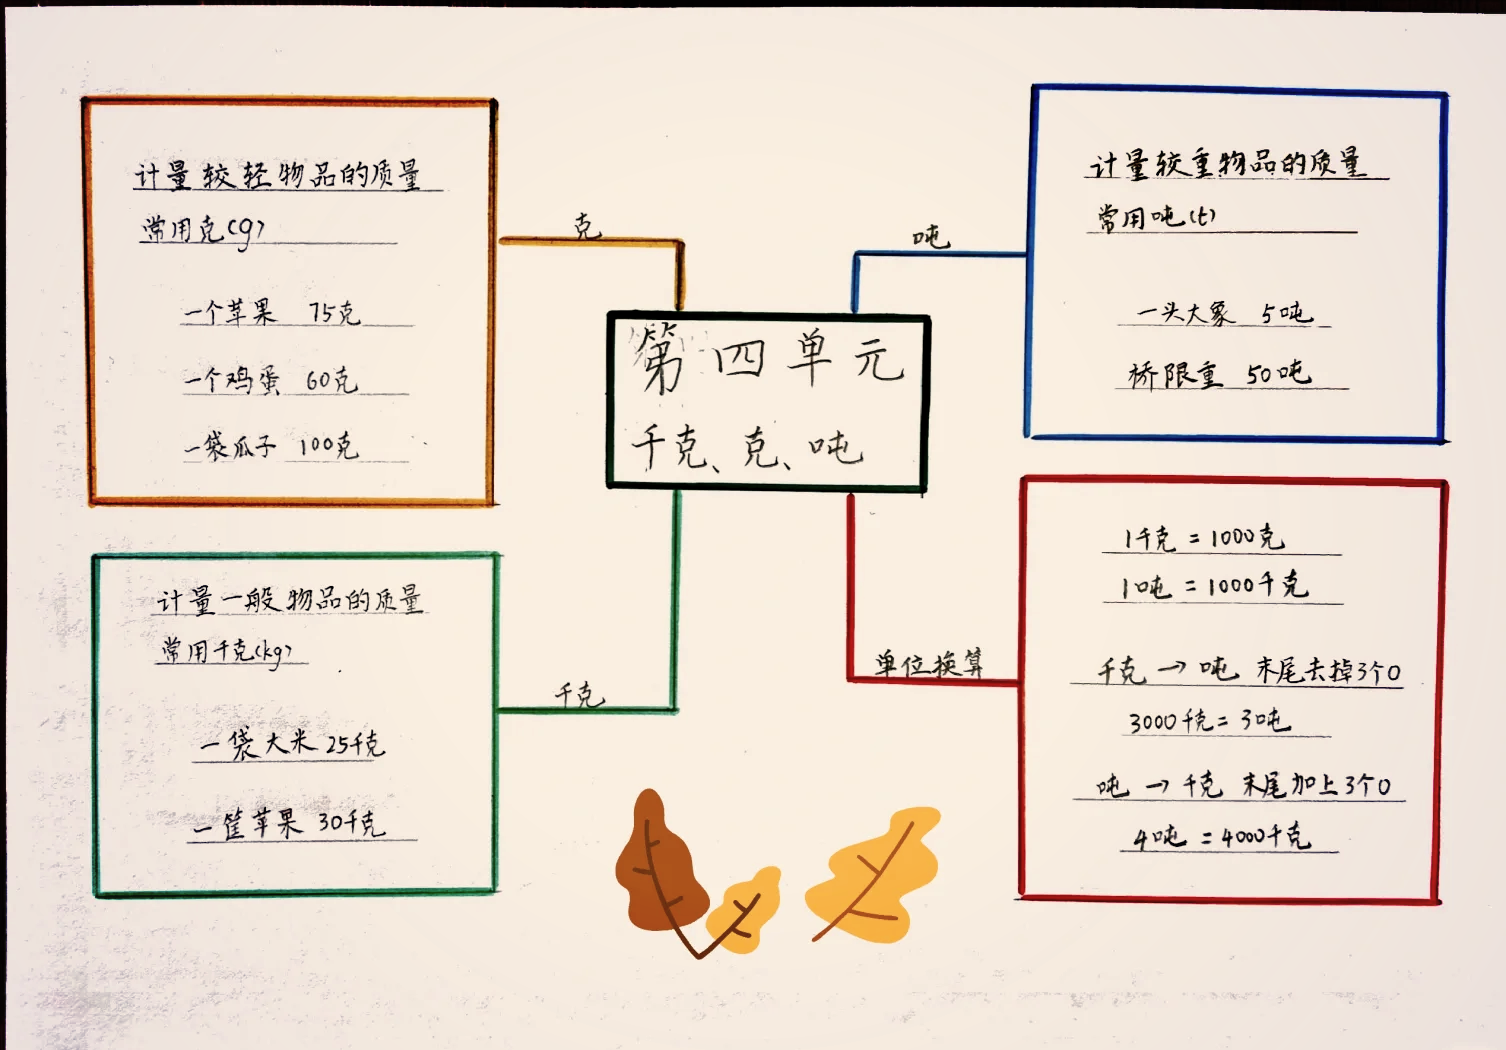 计量较轻物品的质量
常用克(g)
一个苹果 75克
一个鸡蛋 60克
一袋瓜子 100克
克
吨
计量较重物品的质量
常用吨(t)
一头大象 5吨
桥限重 50吨
第四单元
千克、克、吨
计量一般物品的质量
常用千克(kg)
一袋大米 25千克
一筐苹果 30千克
千克
单位换算
1千克=1000克
1吨=1000千克
千克→吨 末尾去掉3个0
3000千克=3吨
吨→千克 末尾加上3个0
4吨=4000千克